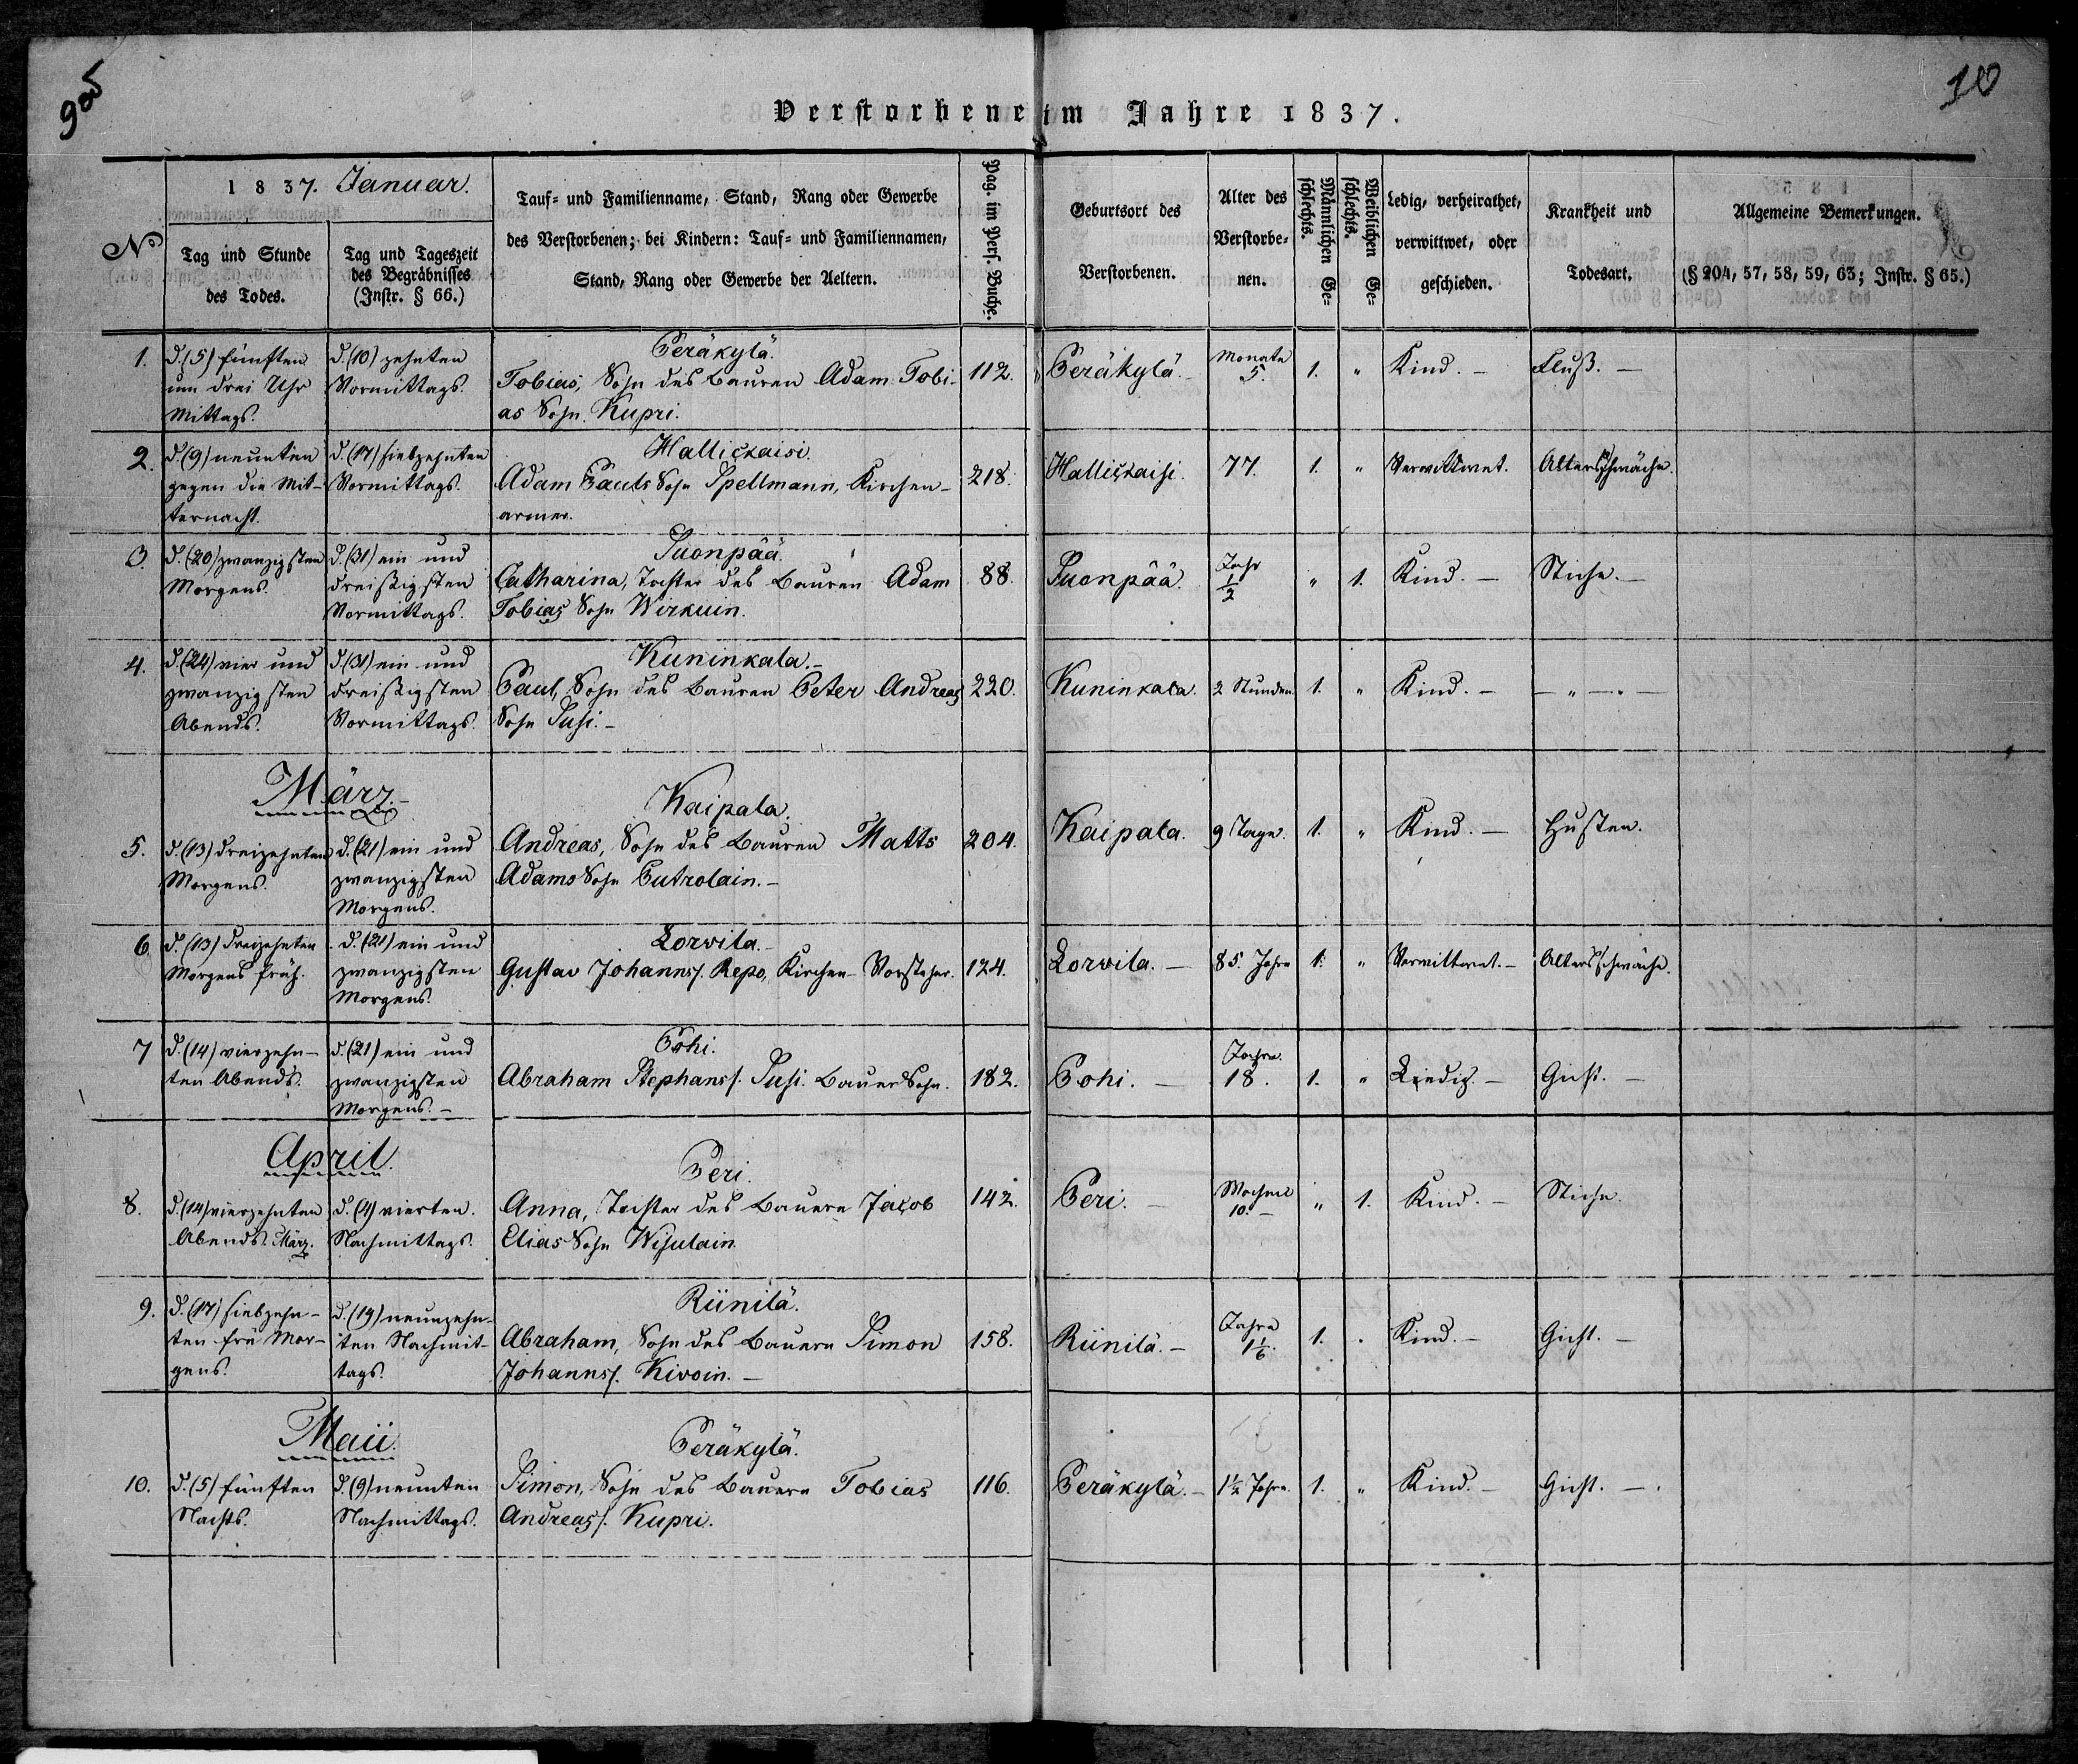 9 ob
10
Verstorbene im Jahre 1837.
No
1837. Januar.
Tag und Stunde
des Todes.
Tag und Tageszeit
des Begräbnisses
(Instr. § 66.)
Tauf- und Familienname, Stand, Rang oder Gewerbe
des Verstorbenen; bei Kindern: Tauf- und Familiennamen,
Stand, Rang oder Gewerbe der Aeltern.
Pag. im Pers. Buche.
Geburtsort des
Verstorbenen.
Alter des
Verstorbe-
nen.
Männlichen Ge-
schlechts.
Weiblichen Ge-
schlechts.
Ledig, verheirathet,
verwittwet, oder
geschieden.
Krankheit und
Todesart.
Allgemeine Bemerkungen.
(§ 204, 57, 58, 59, 63; Instr. § 65.)
1.
d. (5) fünften
um drei Uhr
Mittags.
d. (10) zehnten
Vormittags.
Peräkylä.
Tobias, Sohn des Bauren Adam Tobi-
as Sohn Kupri.
112.
Peräkylä.
Monate
5.
1.
"
Kind. —
Fluß. —
2.
d. (9) neunten
gegen die Mit-
ternacht.
d. (17) siebzehnten
Vormittags.
Hallickaisi.
Adam Pauls Sohn Spellmann, Kirchen-
armer.
218.
Hallickaisi.
77.
1.
"
Verwittwet.
Altersschwäche.
3.
d. (20) zwanzigsten
Morgens.
d. (31) ein und
dreißigsten
Vormittags.
Suonpää.
Catharina, Tochter des Bauren Adam
Tobias Sohn Wirkuin.
88.
Suonpää.
Jahr
1/2
"
1.
Kind. —
Stiche. —
4.
d. (24) vier und
zwanzigsten
Abends.
d. (31) ein und
dreißigsten
Vormittags.
Kuninkala. —
Paul, Sohn des Bauren Peter Andreas
Sohn Susi. —
220.
Kuninkala.
2 Stunden
1.
"
Kind. —
— " — "
März. —
5.
d. (13) dreizehnten
Morgens.
d. (21) ein und
zwanzigsten
Morgens.
Kaipala.
Andreas, Sohn des Bauren Matts
Adams Sohn Putrolain. —
204.
Kaipala.
9 Tage.
1.
"
Kind. —
Husten.
6
d. (13) dreizehnten
Morgens früh.
d. (21) ein und
zwanzigsten
Morgens.
Lorvila. —
Gustav Johanns s. Repo, Kirchen-Vorsteher.
124.
Lorvila. —
85. Jahre
1.
"
Verwittwet. —
Altersschwäche.
7
d. (14) vierzehn-
ten Abends.
d. (21) ein und
zwanzigsten
Morgens. —
Pohi.
Abraham Stephans s. Susi. Bauer Sohn.
182.
Pohi. —
Jahre.
18.
1.
"
Liedig. —
Gicht. —
April.
8.
d. (14) vierzehnten
Abends. März.
d. (4) vierten.
Nachmittags.
Peri.
Anna, Tochter des Bauern Jacob
Elias Sohn Wisulain.
142.
Peri. —
Wochen
10. —
"
1.
Kind. —
Stiche.
9.
d. (17) siebzehn-
ten frü Mor-
gens.
d. (19) neunzehn-
ten Nachmit-
tags.
Riinilä.
Abraham, Sohn des Bauern Simon
Johanns s. Kivoin. —
158.
Riinilä. —
Jahre
1 1/6.
1.
"
Kind. —
Gicht. —
Maii.
10.
d. (5) fünften
Nachts.
d. (9) neunten
Nachmittags.
Peräkylä.
Simon, Sohn des Bauern Tobias
Andreas s. Kupri.
116.
Peräkylä. —
1 1/2 Jahre.
1.
"
Kind. —
Gicht. —